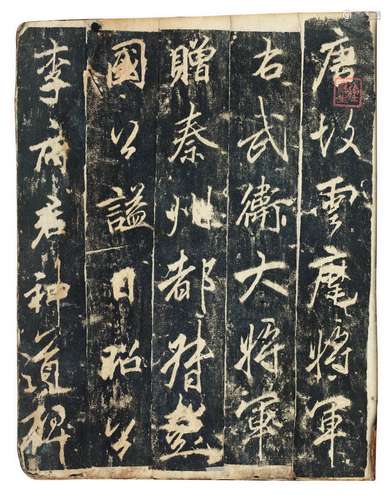 唐故雲麾將軍
右武衛大將軍
贈秦州都督彭
國公謚曰昭公
李府君神道碑